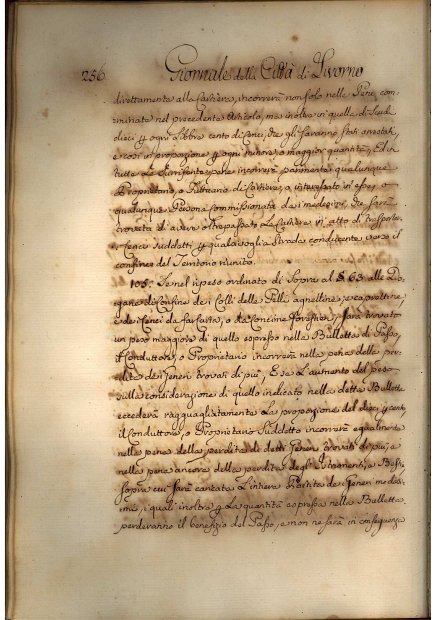 256. Giornale della Città di Livorno
direttamente alla Cartiera, incorrerà non solo nelle Pene, com-
minate nel precedente Articolo, ma inoltre in quella di Scudi
dieci p ogni Libbre cento di Cenci, che gli saranno stati arrestati,
e così in proporzione p ogni minore, o maggior quantità, Ed in
tutte le Surriferite pene incorrerà parimente qualunque
Proprietario, o Ritenano di Cartiere, o interessato in esse, o
qualunque Persona commissionata da i medesimi, che sarà
trovata di avere oltrepassato la Cartiera in atto di trasportar
Cenci suddetti p qualsivoglia Strada conducente verso il
confine del Territorio riunito.
105. Se nel ripeso ordinato di Sopra al § 63. alle Do-
gane di Confine de i Colli delle Pelli agnelline, e caprettine,
e de i Cenci da far carta, o da Concime forastieri, sarà trovato
un peso maggiore di quello espresso nella Bulletta di Passo,
il Conduttore, o Proprietario incorrerà nella pena della per-
dita de i Generi trovati di più, E se l'aumento del peso
sulla considerazione di quello indicato nella detta Bulletta
eccederà ragguagliatamente la proporzione del dieci p cento,
il Conduttore, o Proprietario Suddetto incorrerà egualmente
nella pena della perdita di detti Generi trovati di più, e
nella pena ancora della perdita degli Istrumenti, o Bestie
sopra cui sarà caricata l'intiera Partita de i Generi medesi-
mi, i quali inoltre p la quantità espressa nella Bulletta
perderanno il benefizio del Passo, e non ne sarà in conseguenza